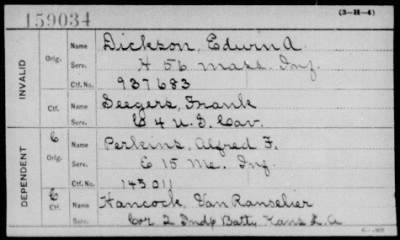 159034
(3-H-4)
INVALID
Orig. Name Dickson, Edwin A.
Serv. H 56 Mass. Inf.
Ctf. No. 937683
Ctf. Name Seegers, Frank
Serv. C 4 U.S. Cav.
DEPENDENT
C Orig. Name Perkins, Alfred F.
Serv. E 15 Me. Inf.
Ctf. No. 143011
C Ctf. Name Hancock, Van Ranselier
Serv. Cor 2 Indp Batty Kans L. A